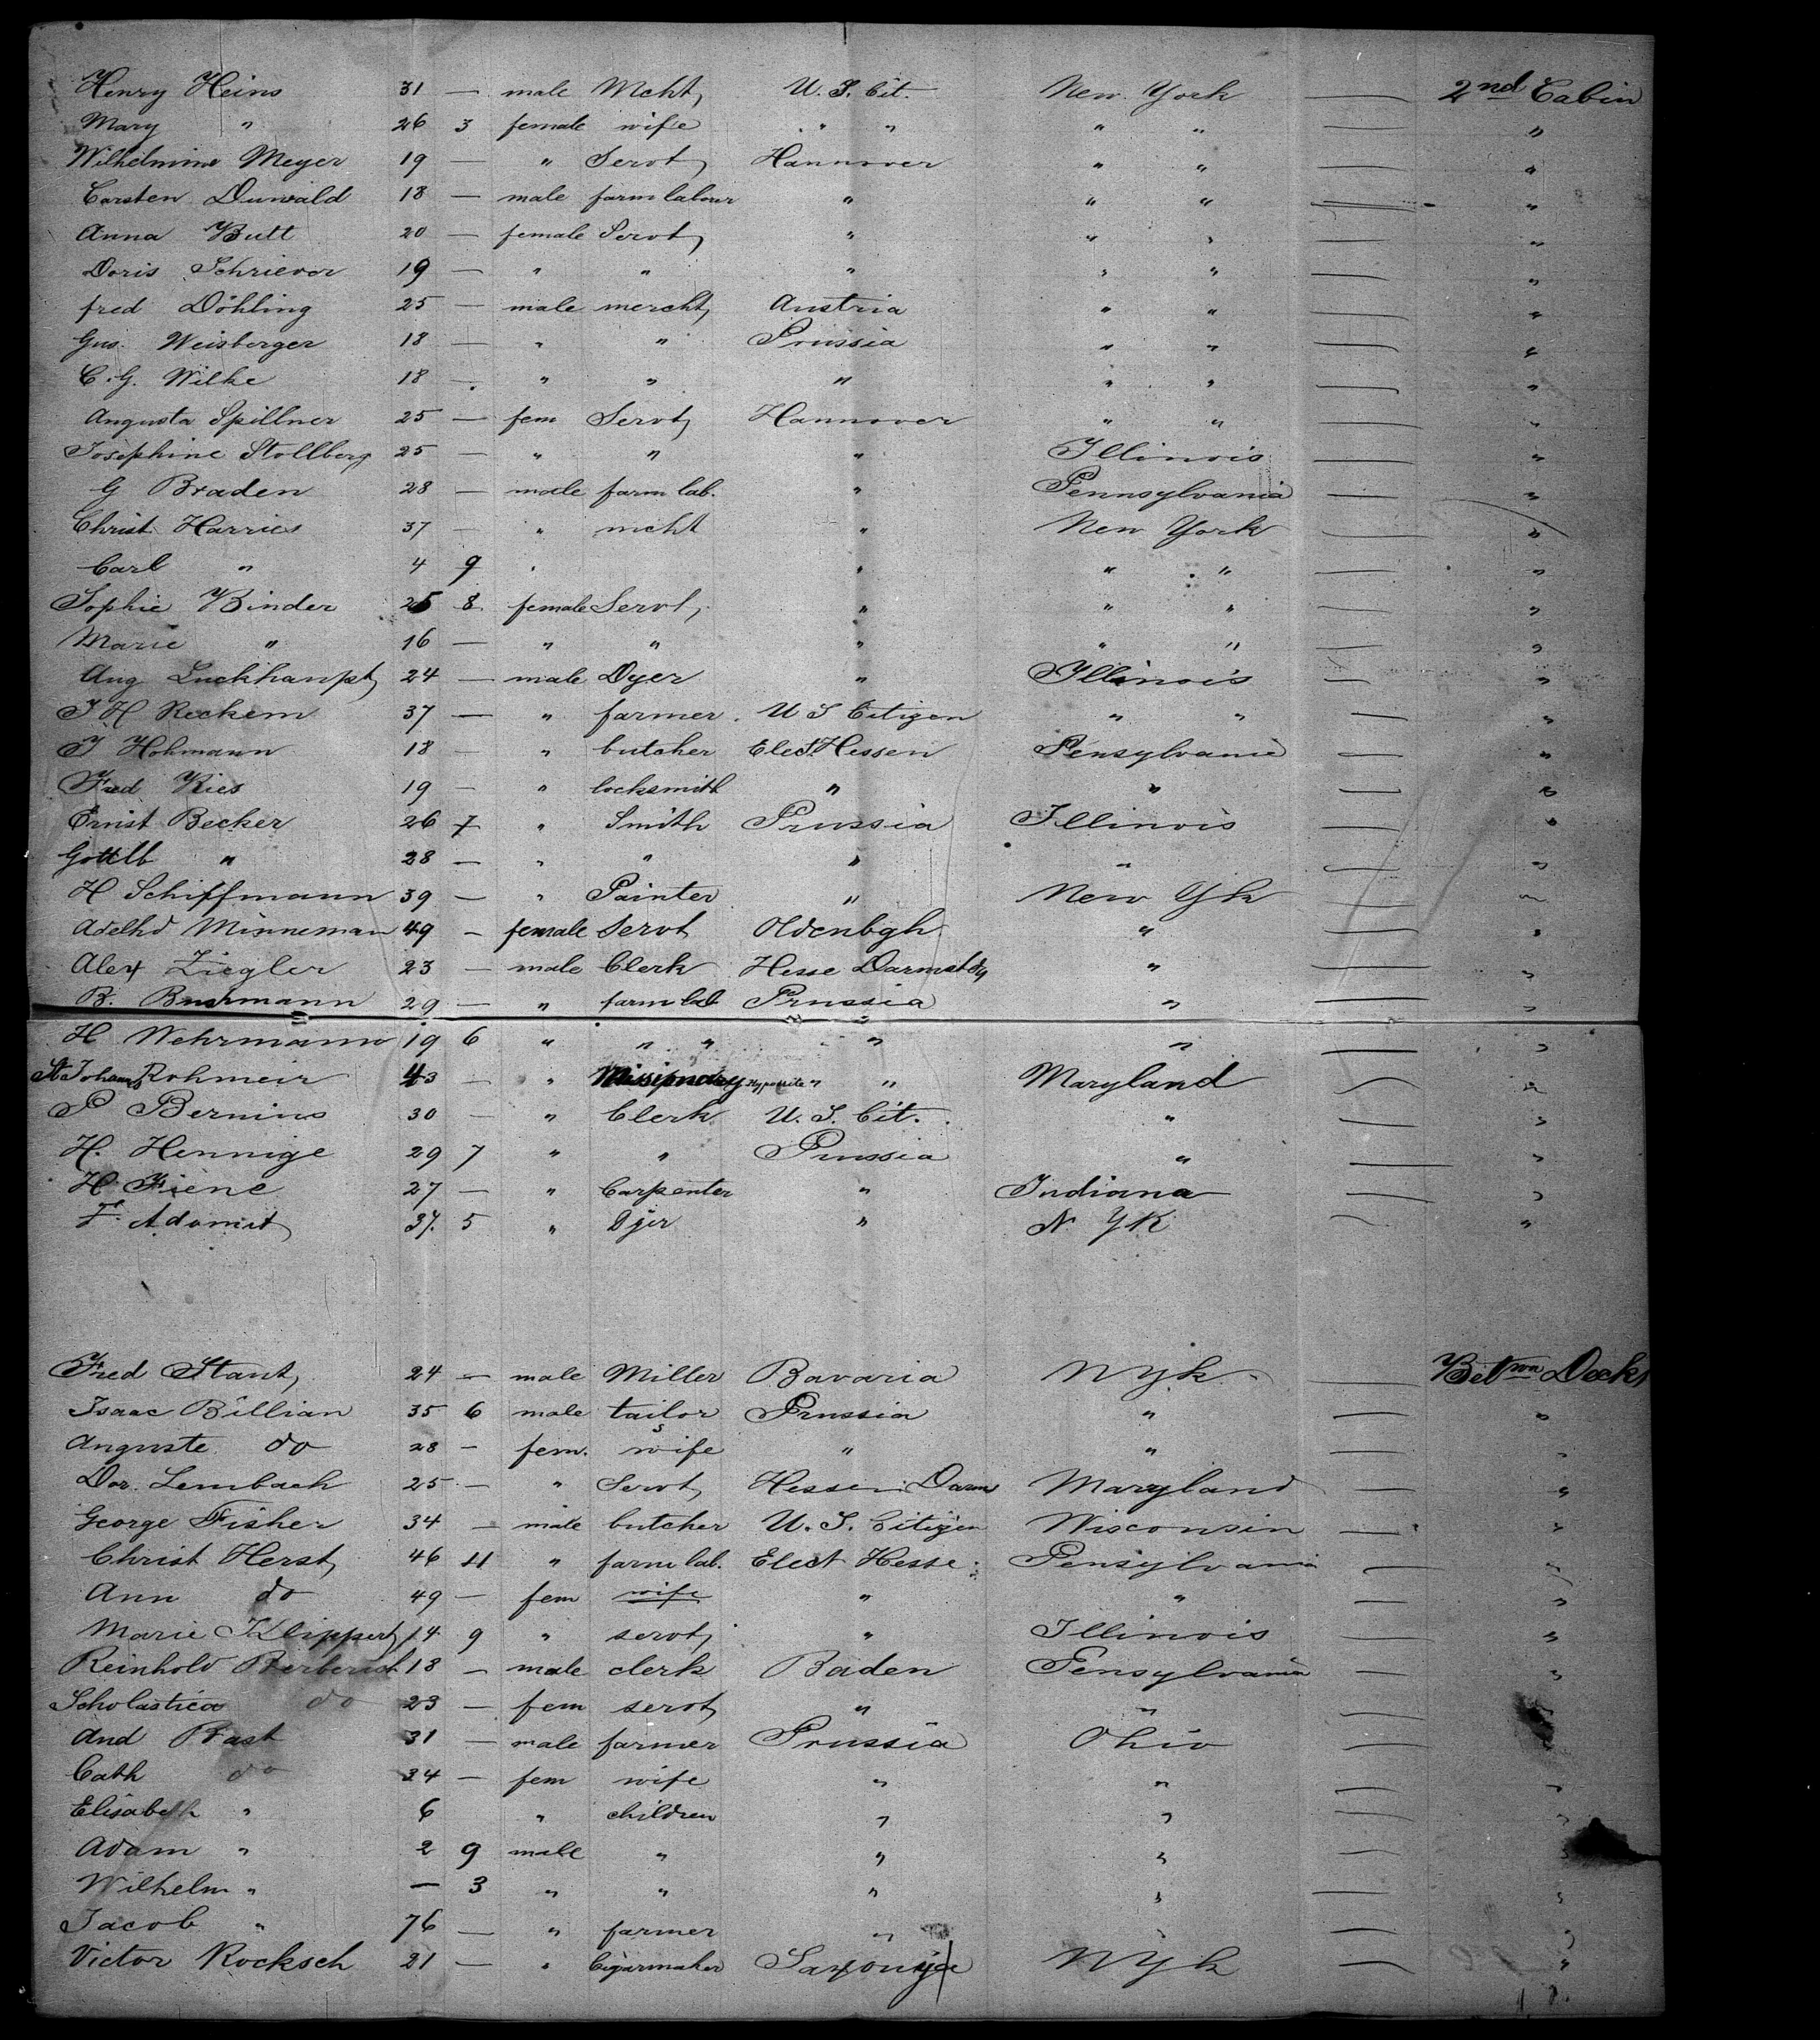 Henry Heins 31 — male Mcht, U. S. Cit. New York — 2nd Cabin
Mary " 26 3 female wife " " " " — "
Wilhelmine Meyer 19 — " Servt, Hannover " " — "
Carsten Dunwald 18 — male farm labour " " " — "
Anna Butt 20 — female Servt, " " " — "
Doris Schriever 19 — " " " " " — "
fred Döhling 25 — male mercht, Austria " " — "
Gus. Weisberger 18 — " " Prussia " " — "
C. G. Wilke 18 — " " " " " — "
Augusta Spillner 25 — fem Servt, Hannover " " — "
Josephine Stollberg 25 — " " " Illinois — "
G Braden 28 — male farm lab. " Pennsylvania — "
Christ. Harries 37 — " mcht " New York — "
Carl " 4 9 " " " " — "
Sophie Binder 25 8 female Servt, " " " — "
Marie " 16 — " " " " " — "
Aug Luckhaupt, 24 — male Dyer " Illinois — "
J H Reckem 37 — " farmer. U S Citizen " " — "
J Hohmann 18 — " butcher Elect. Hessen Pensylvania — "
Fred Ries 19 — " locksmith " " — "
Ernst Becker 26 7 " Smith Prussia Illinois — "
Gottlb " 28 — " " " " — "
H Schiffmann 39 — " Painter " New Yk — "
Adelhd Minneman 49 — female Servt Oldenbgh " — "
Alex Ziegler 23 — male Clerk Hesse Darmstdt, " — "
B. Buhrmann 29 — " farm lab Prussia " — "
H Wehrmann 19 6 " " " " " — "
Johann Rohmeir 43 — " " " Maryland — "
P Bernins 30 — " Clerk U. S. Cit. " — "
H. Hennige 29 7 " " Prussia " — "
H. Fiene 27 — " Carpenter " Indiana — "
F. Adamit, 37. 5 " Dyer " N. YK — "
Fred Stant, 24 — male Miller Bavaria N Yk — Betwn Decks
Isaac Billian 35 6 male tailor Prussia " — "
Auguste do 28 — fem. wife " " — "
Dor. Lembach 25 — " Servt, Hessen Darm Maryland — "
George Fisher 34 — male butcher U. S. Citizen Wisconsin — "
Christ Herst, 46 11 " farm lab. Elect Hesse Pensylvania — "
Ann do 49 — fem wife " " — "
Marie Klippert, 14 9 " servt, " Illinois — "
Reinhold Berberich 18 — male clerk Baden Pensylvania — "
Scholastica do 23 — fem servt, " " — "
And Brast 31 — male farmer Prussia Ohio — "
Cath do 34 — fem wife " " — "
Elisabeth " 6 " children " " — "
Adam " 2 9 male " " " — "
Wilhelm " — 3 " " " " — "
Jacob " 76 — " farmer " " — "
Victor Rocksch 21 — " Cigarmaker Saxony N Yk — "